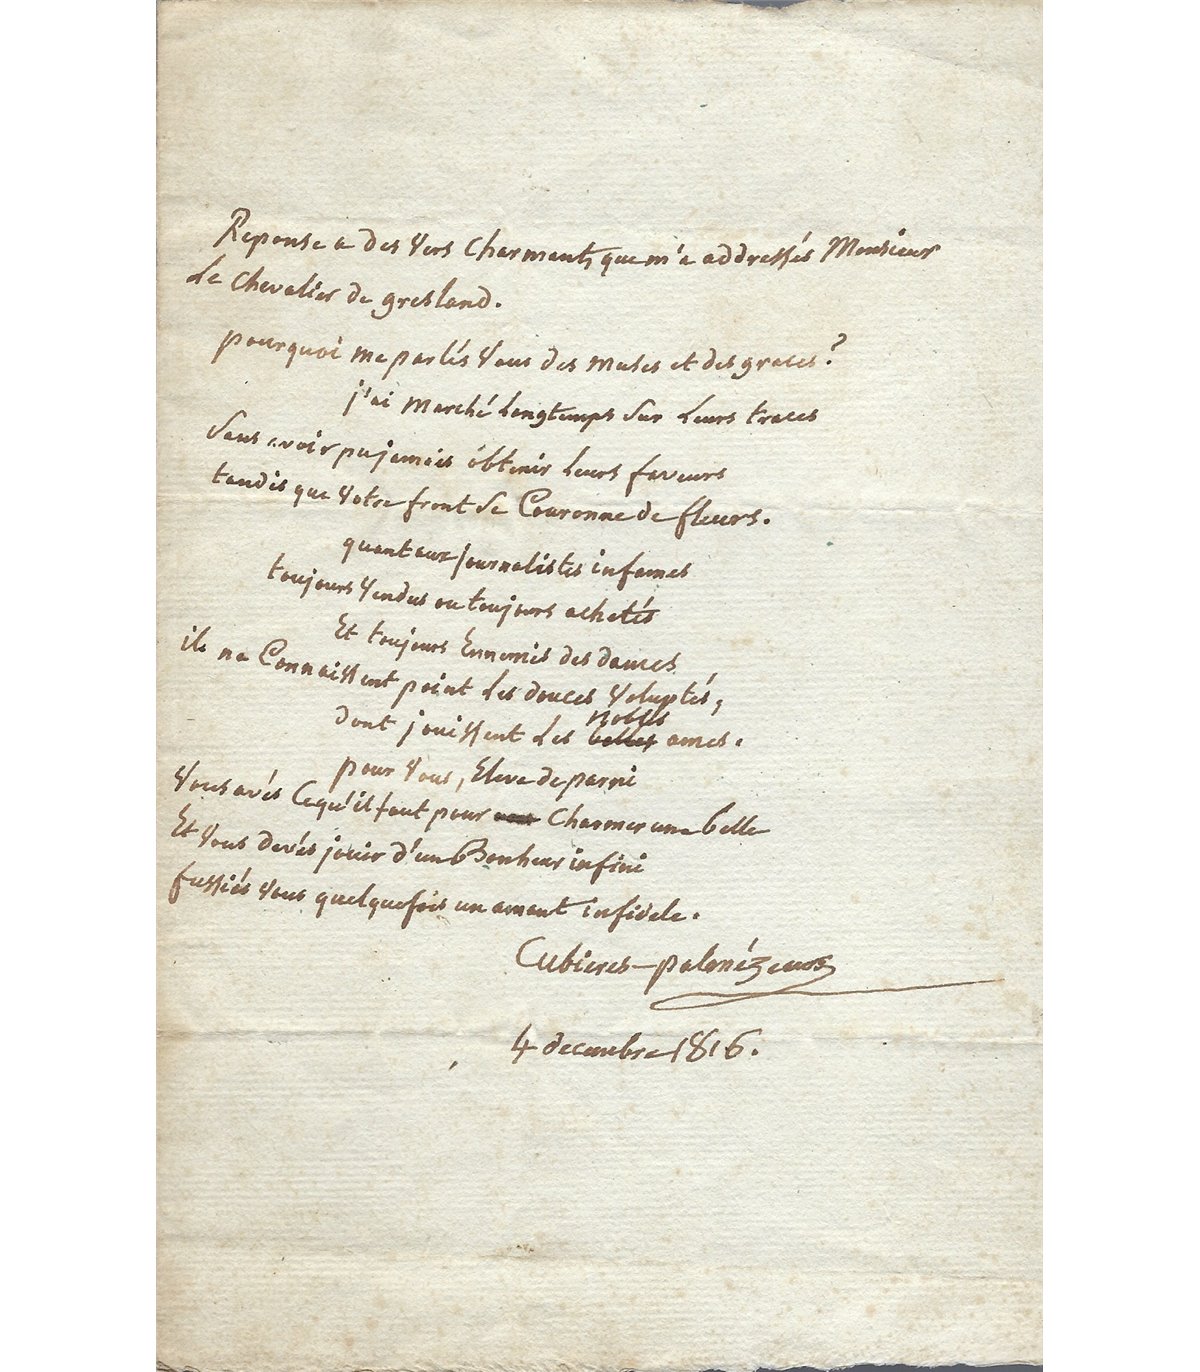 Reponse a des vers charmants que m'a addressés Monsieur
Le chevalier de gresland.
pourquoi me parlés vous des muses et des graces ?
j'ai marché longtemps sur leurs traces
sans avoir pu jamais obtenir leurs faveurs
tandis que votre front se Couronne de fleurs.
quant aux journalistes infames
toujours vendus ou toujours achetés
Et toujours Ennemis des dames
ils ne Connaissent point les douces voluptés,
nobles
dont jouissent les belles ames.
pour vous, Eleve de parni
vous avés Cequ'il faut pour Charmer une belle
Et vous devés jouir d'un Bonheur infini
fussiés vous quelquefois un amant infidele.
Cubieres-palmézeaux
4 decembre 1816.